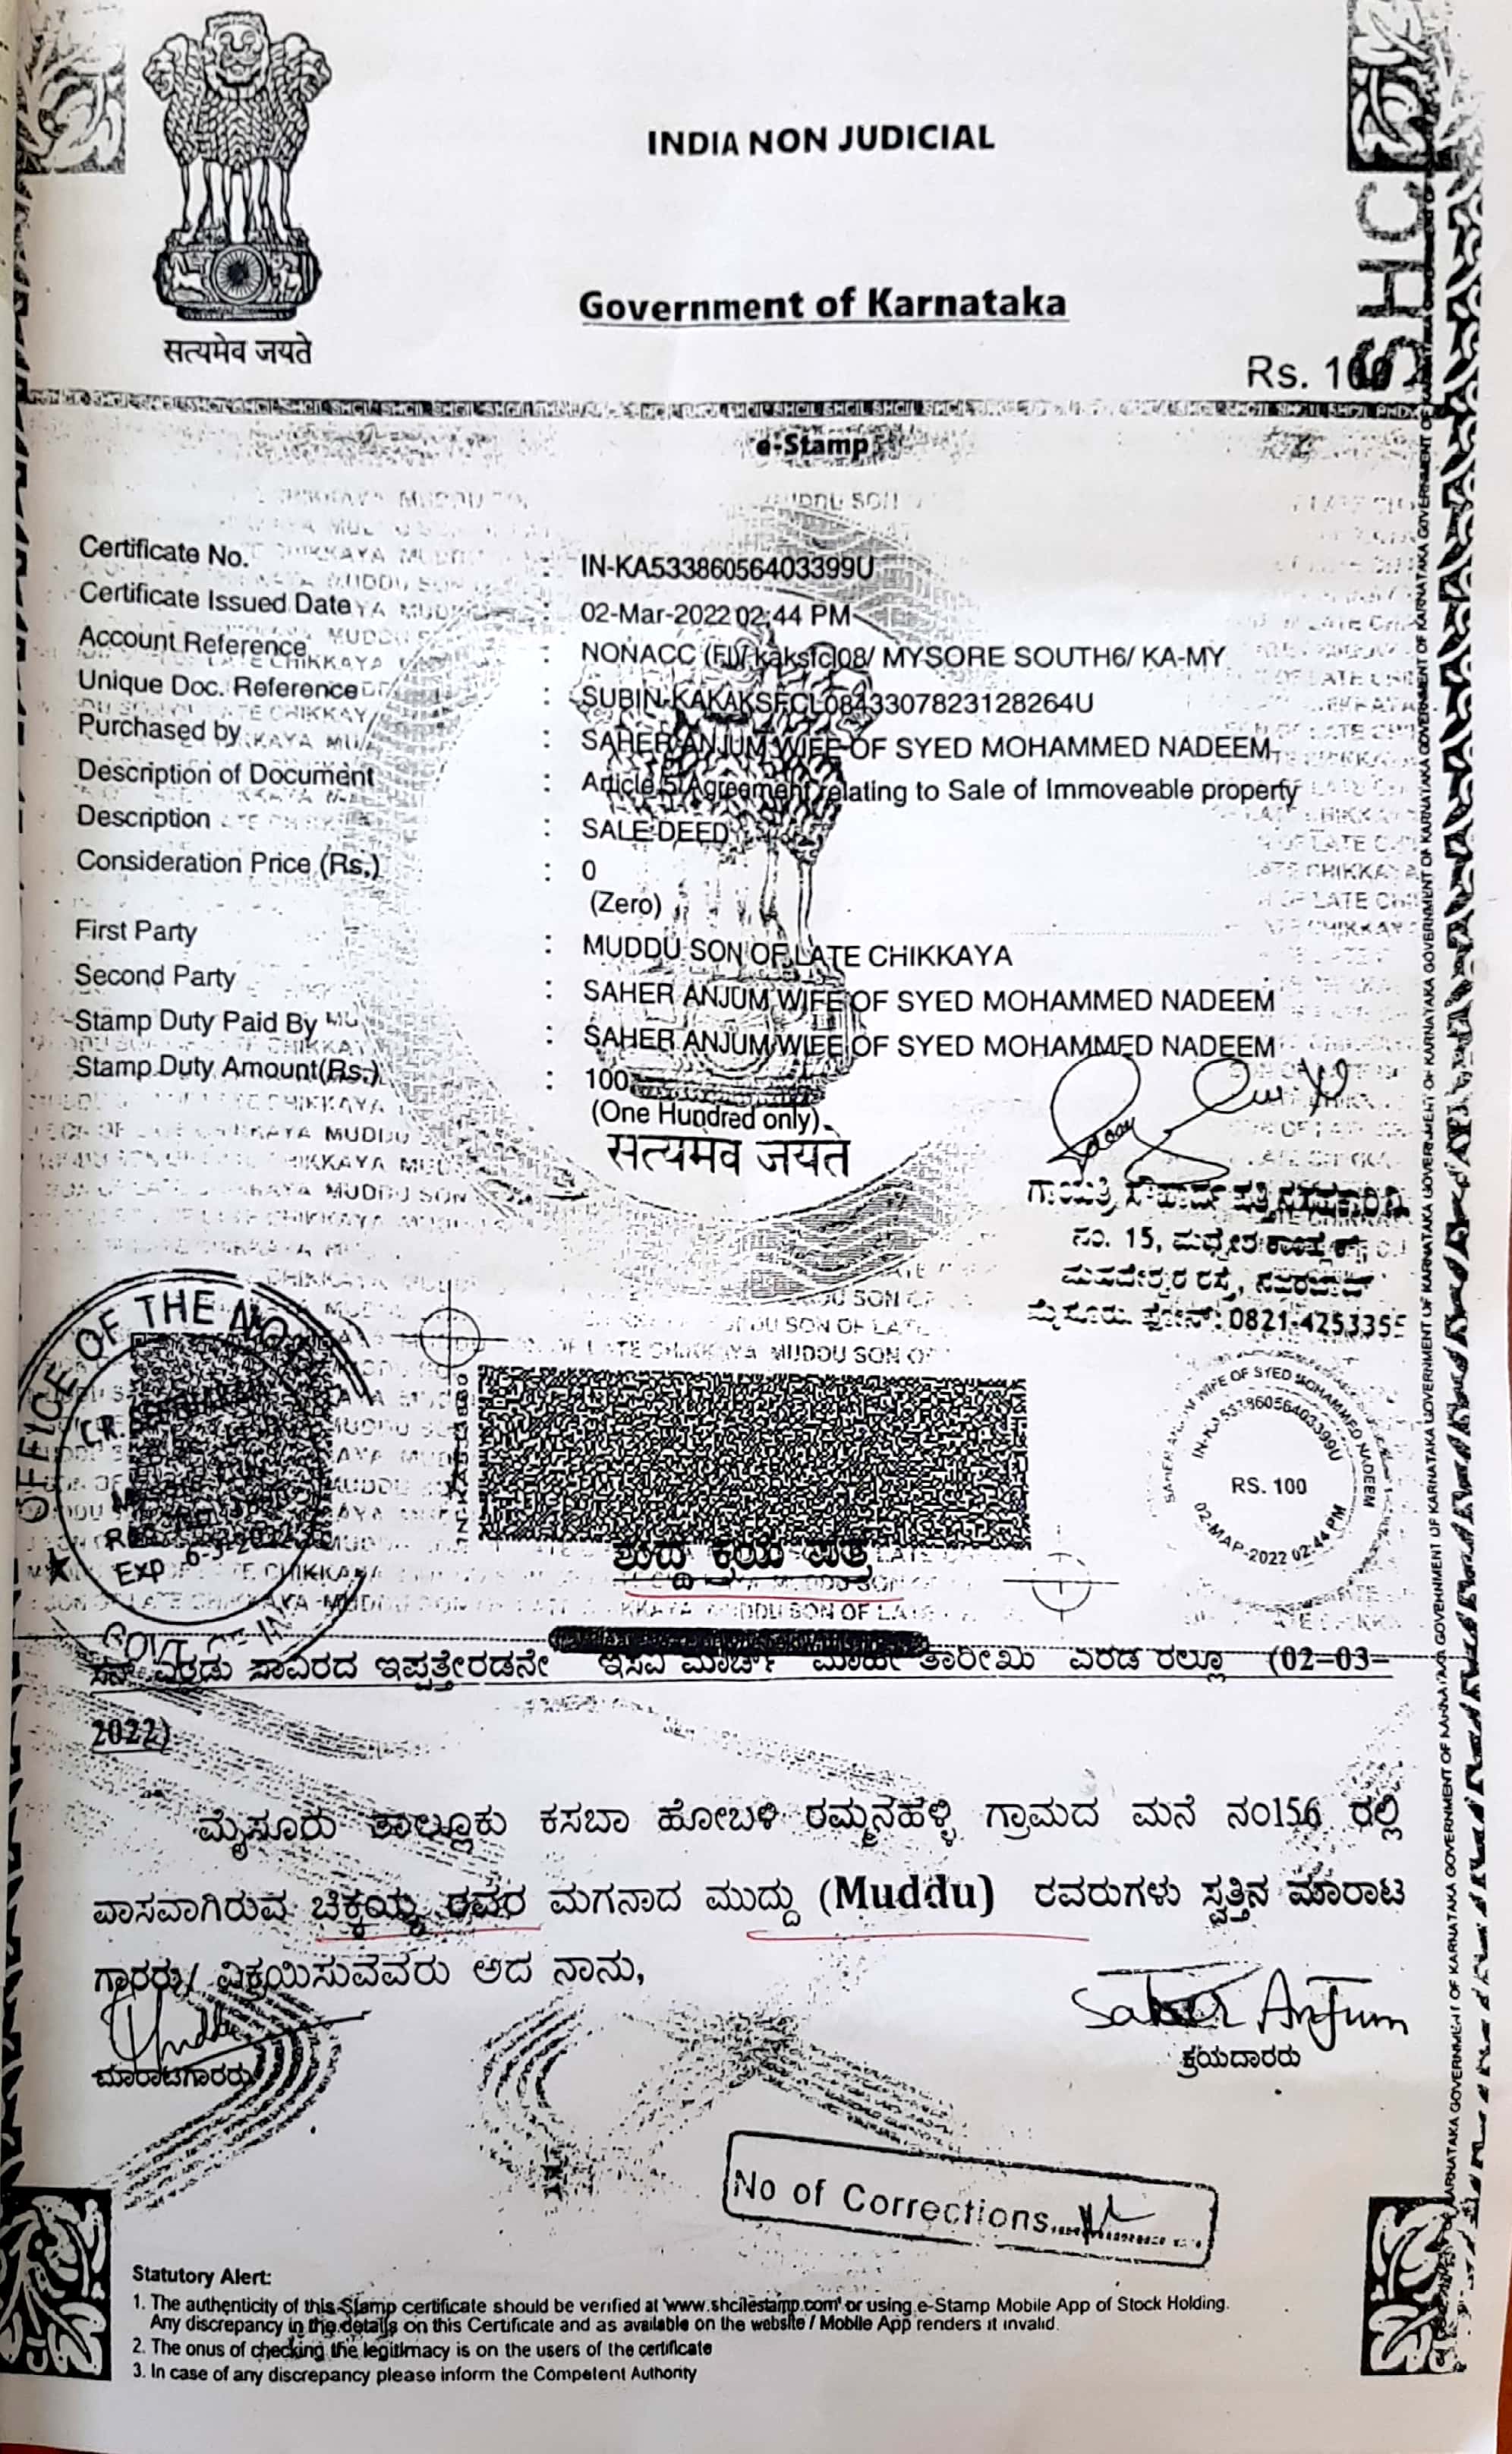 INDIA NON JUDICIAL
Government of Karnataka
सत्यमेव जयते
Rs. 100
SHC
e-Stamp
Certificate No. : IN-KA53386056403399U
Certificate Issued Date : 02-Mar-2022 02:44 PM
Account Reference : NONACC (FI)/ kaksfcl08/ MYSORE SOUTH6/ KA-MY
Unique Doc. Reference : SUBIN-KAKAKSFCL0843307823128264U
Purchased by : SAHER ANJUM WIFE OF SYED MOHAMMED NADEEM
Description of Document : Article 5 Agreement relating to Sale of Immoveable property
Description : SALE DEED
Consideration Price (Rs.) : 0
(Zero)
First Party : MUDDU SON OF LATE CHIKKAYA
Second Party : SAHER ANJUM WIFE OF SYED MOHAMMED NADEEM
Stamp Duty Paid By : SAHER ANJUM WIFE OF SYED MOHAMMED NADEEM
Stamp Duty Amount(Rs.) : 100
(One Hundred only)
सत्यमेव जयते
ಗಾಯತ್ರಿ ಸೌಹಾರ್ದ ಪತ್ತಿನ
ನಂ. 15,
ರಸ್ತೆ,
ಮೈಸೂರು. ಫೋನ್: 0821-4253355
OFFICE OF THE
Exp 6-3-
GOVT. OF IN
SAHER ANJUM WIFE OF SYED MOHAMMED NADEEM
IN-KA53386056403399U
RS. 100
02-MAR-2022 02:44 PM
ಶುದ್ಧ ಕ್ರಯ ಪತ್ರ
ಸನ್ ಎರಡು ಸಾವಿರದ ಇಪ್ಪತ್ತೇರಡನೇ ಇಸವಿ ಮಾರ್ಚ್ ಮಾಹೆ ತಾರೀಖು ಎರಡ ರಲ್ಲೂ (02-03-
2022)
ಮೈಸೂರು ತಾಲ್ಲೂಕು ಕಸಬಾ ಹೋಬಳಿ ರಮ್ಮನಹಳ್ಳಿ ಗ್ರಾಮದ ಮನೆ ನಂ156 ರಲ್ಲಿ
ವಾಸವಾಗಿರುವ ಚಿಕ್ಕಯ್ಯ ರವರ ಮಗನಾದ ಮುದ್ದು (Muddu) ರವರುಗಳು ಸ್ವತ್ತಿನ ಮಾರಾಟ
ಗಾರರು/ ವಿಕ್ರಯಿಸುವವರು ಅದ ನಾನು,
Saher Anjum
ಮಾರಾಟಗಾರರು
ಕ್ರಯದಾರರು
No of Corrections
Statutory Alert:
1. The authenticity of this Stamp certificate should be verified at 'www.shcilestamp.com' or using e-Stamp Mobile App of Stock Holding.
Any discrepancy in the details on this Certificate and as available on the website / Mobile App renders it invalid.
2. The onus of checking the legitimacy is on the users of the certificate
3. In case of any discrepancy please inform the Competent Authority